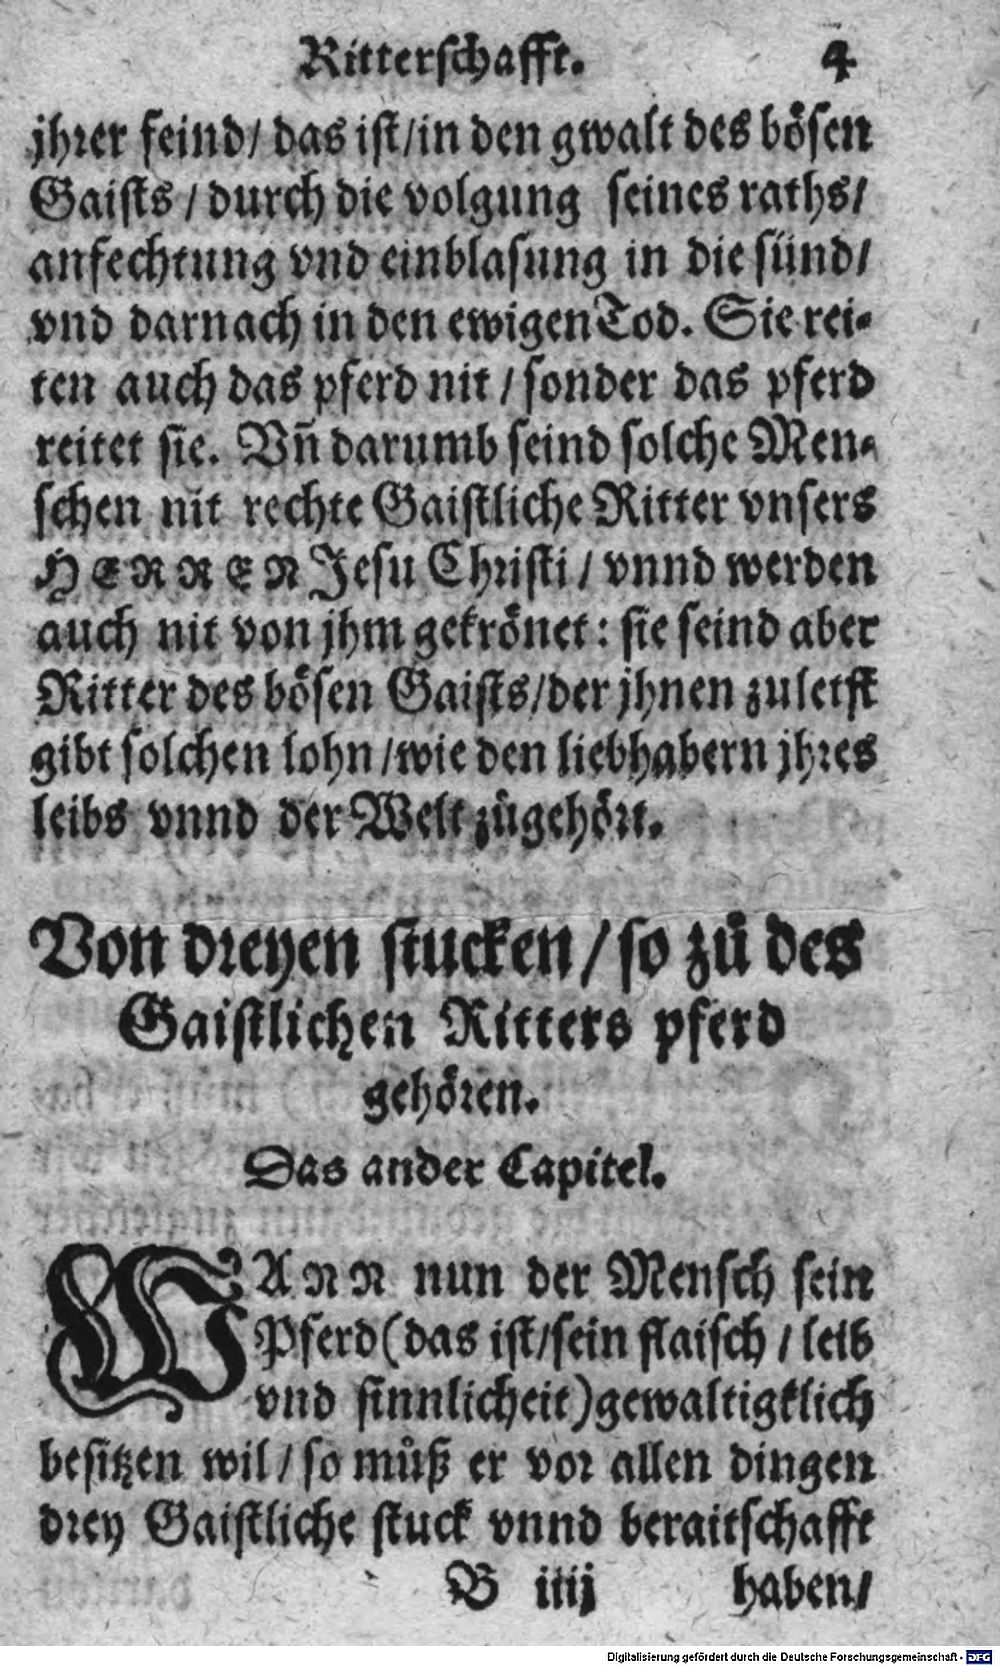 Ritterschafft. 4
jhrer feind/ das ist/in den gwalt des bösen
Gaists / durch die volgung seines raths/
anfechtung vnd einblasung in die sünd/
vnd darnach in den ewigen Tod. Sie rei-
ten auch das pferd nit / sonder das pferd
reitet sie. Vñ darumb seind solche Men-
schen nit rechte Gaistliche Ritter vnsers
HERREN Jesu Christi / vnnd werden
auch nit von jhm gekrönet: sie seind aber
Ritter des bösen Gaists/der jhnen zuletst
gibt solchen lohn /wie den liebhabern jhres
leibs vnnd der Welt zůgehört.
Von dreyen stucken / so zů des
Gaistlichen Ritters pferd
gehören.
Das ander Capitel.
WANN nun der Mensch sein
Pferd (das ist/sein flaisch / leib
vnd sinnlicheit) gewaltigklich
besitzen wil / so můß er vor allen dingen
drey Gaistliche stuck vnnd beraitschafft
B iiij haben/
Digitalisierung gefördert durch die Deutsche Forschungsgemeinschaft - DFG